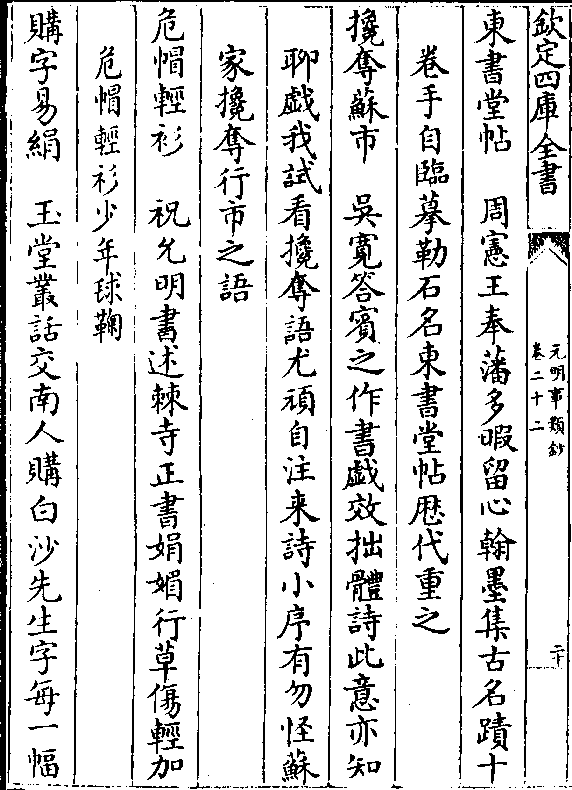 欽定四庫全書
元明事類鈔
卷二十二
二十
東書堂帖　周憲王奉藩多暇留心翰墨集古名蹟十
卷手自臨摹勒石名東書堂帖歷代重之
攙奪蘇市　吳寬答賓之作書戲效拙體詩此意亦知
聊戲我試看攙奪語尤頑自注来詩小序有勿怪蘇
家攙奪行市之語
危帽輕衫　祝允明書述棘寺正書娟媚行草傷輕加
危帽輕衫少年球鞠
購字易絹　玉堂叢話交南人購白沙先生字每一幅